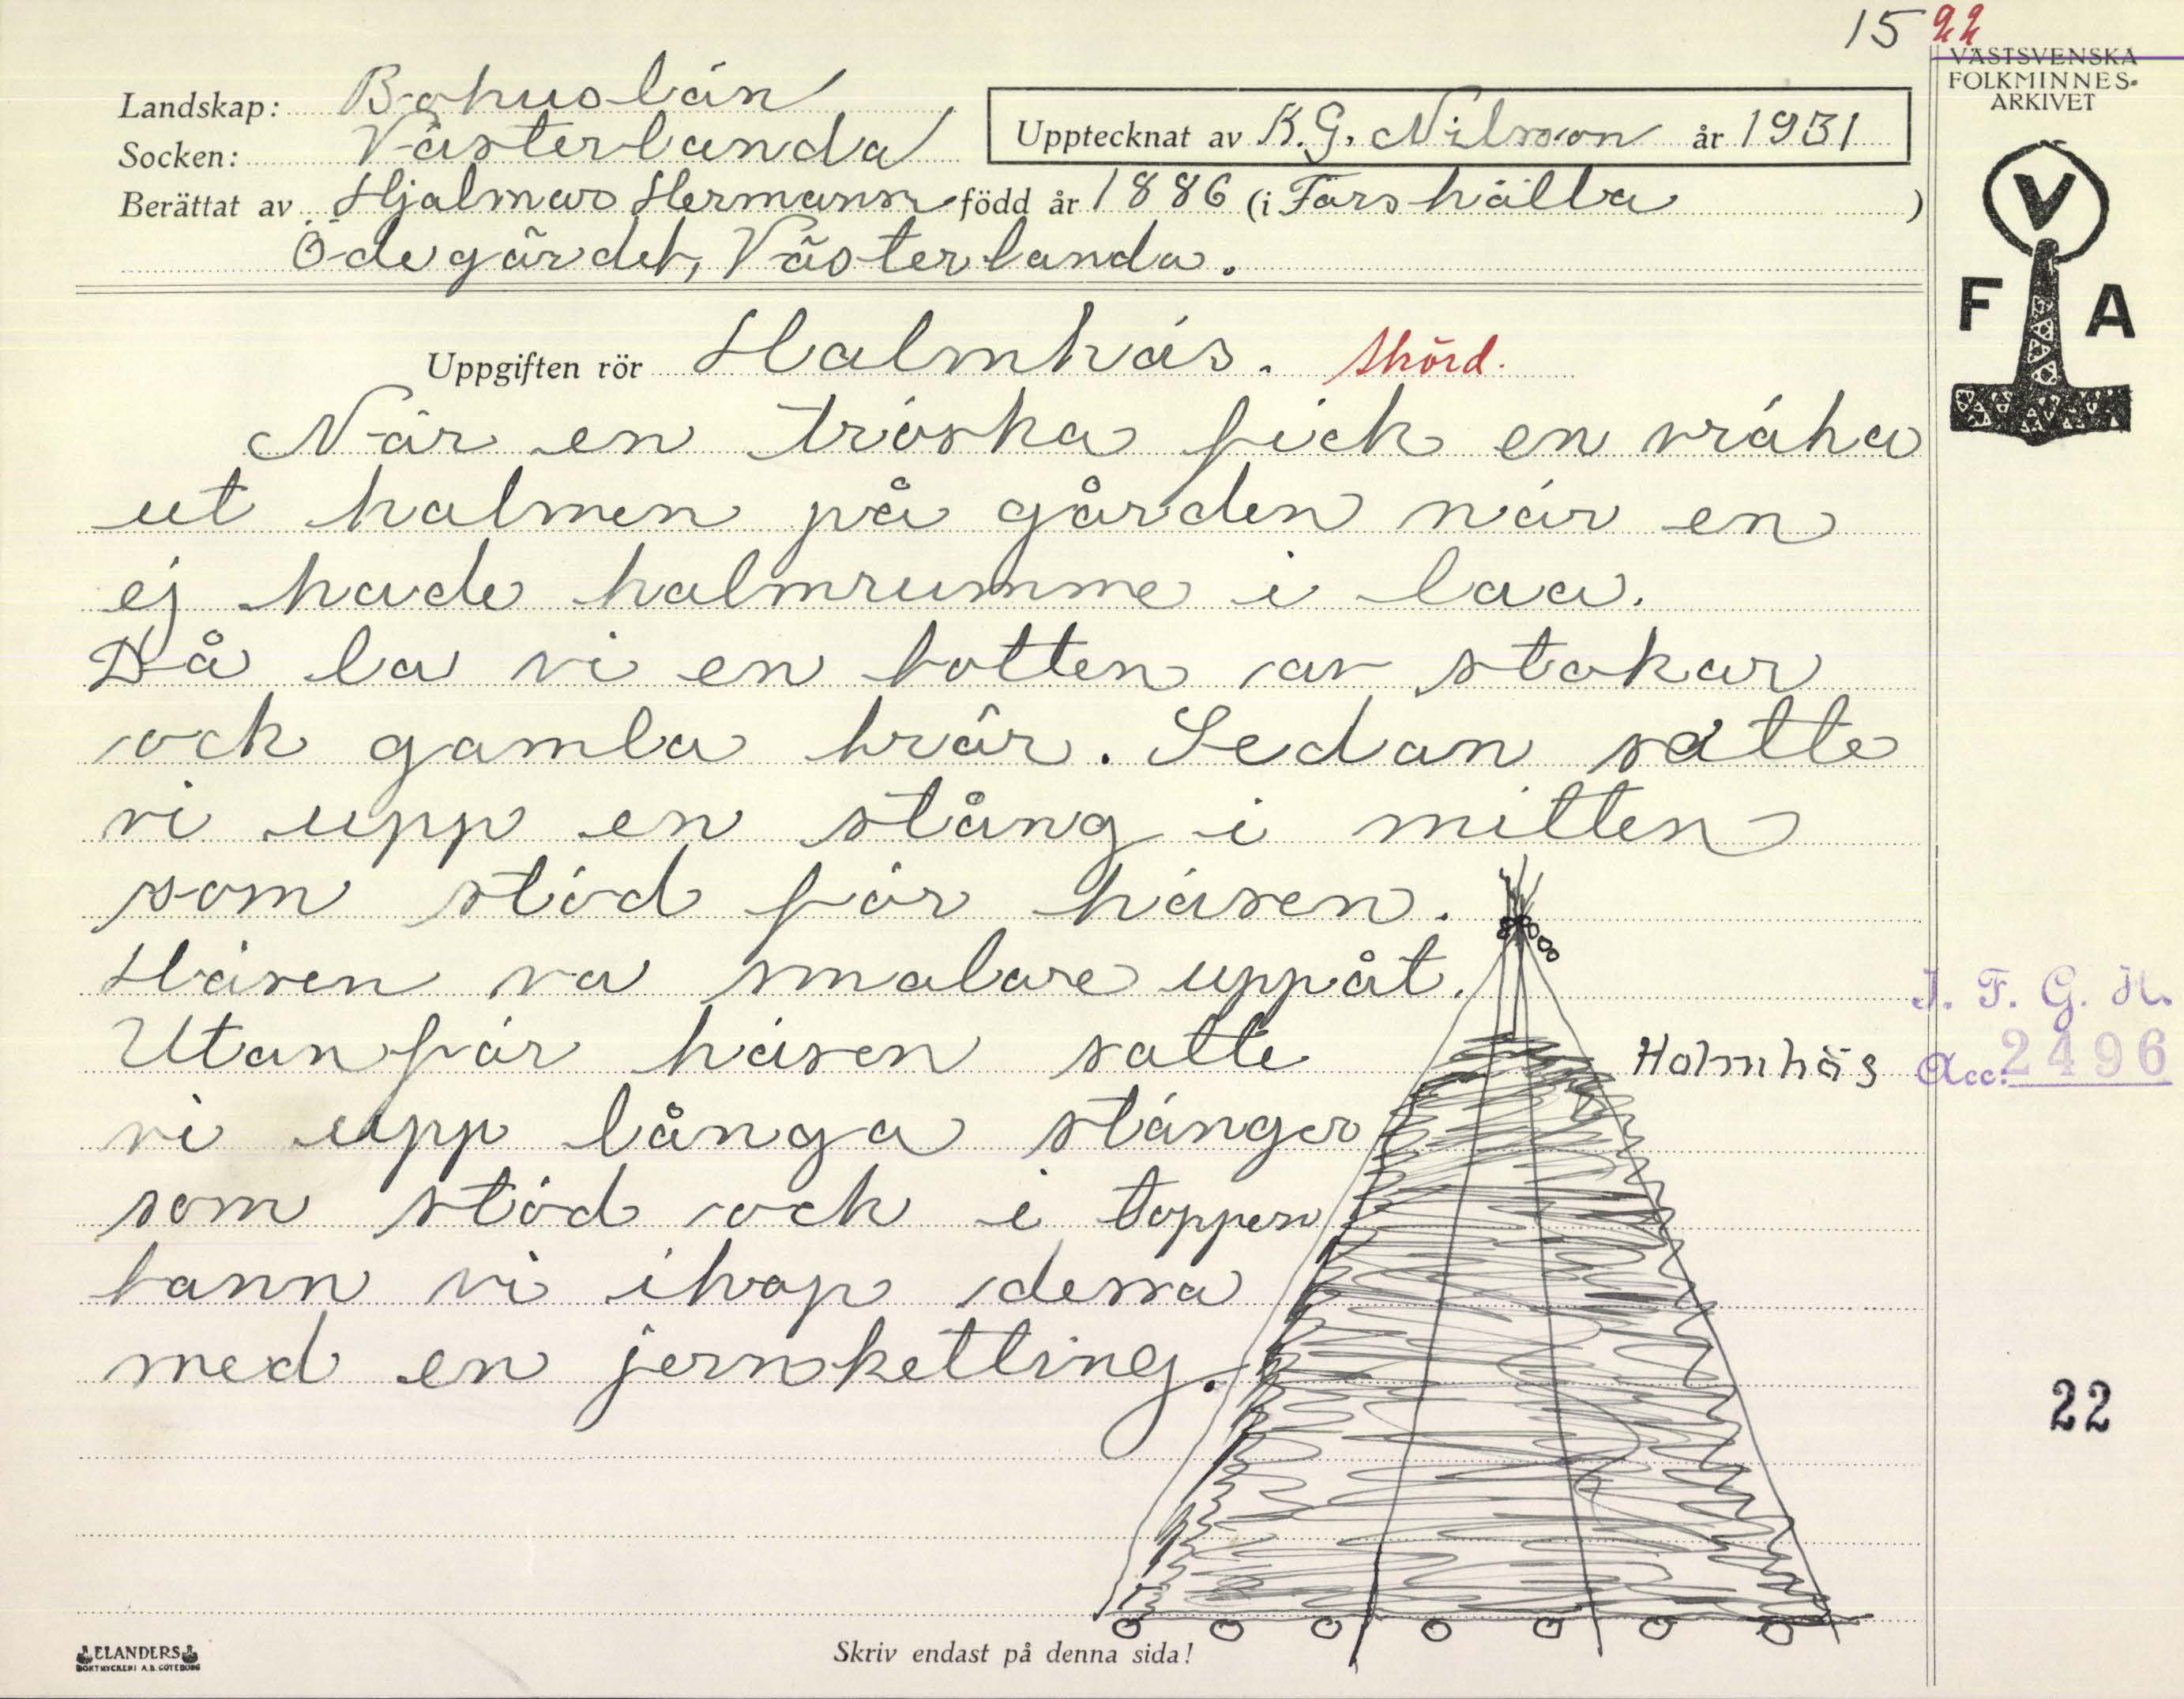 15 22
VÄSTSVENSKA
FOLKMINNES-
ARKIVET
Landskap: Bohuslän
Socken: Västerlanda
Upptecknat av K.G. Nilsson år 1931
Berättat av Hjalmar Hermansn född år 1886 (i Forshälla)
Ödegärdet, Västerlanda.
V
F A
Uppgiften rör Halmhäs. Skörd.
När en tröska fick en vräka
ut halmen på gården när en
ej hade halmrumme i laa.
Då la vi en botten av stokar
och gamla brär. Sedan satte
vi upp en stång i mitten
som stöd för häsen.
Häsen va smalare uppåt.
Utanför häsen satte
vi upp långa stänger
som stöd och i toppen
bann vi ihop dessa
med en jernketting.
Halmhäs
I. F. G. H.
Acc. 2496
22
ELANDERS
BOKTRYCKERI A.B. GÖTEBORG
Skriv endast på denna sida!